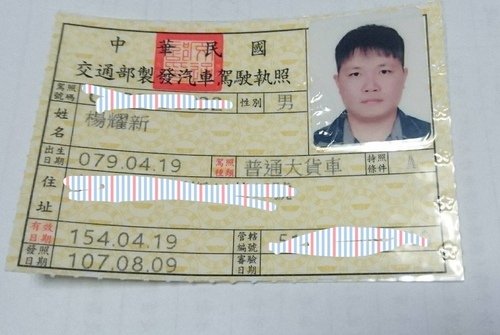 中華民國
交通部製發汽車駕駛執照
駕照號碼
性別 男
姓名 楊耀新
出生日期 079.04.19 駕照種類 普通大貨車 持照條件 A
住址
有效日期 154.04.19 管轄編號
發照日期 107.08.09 審驗日期